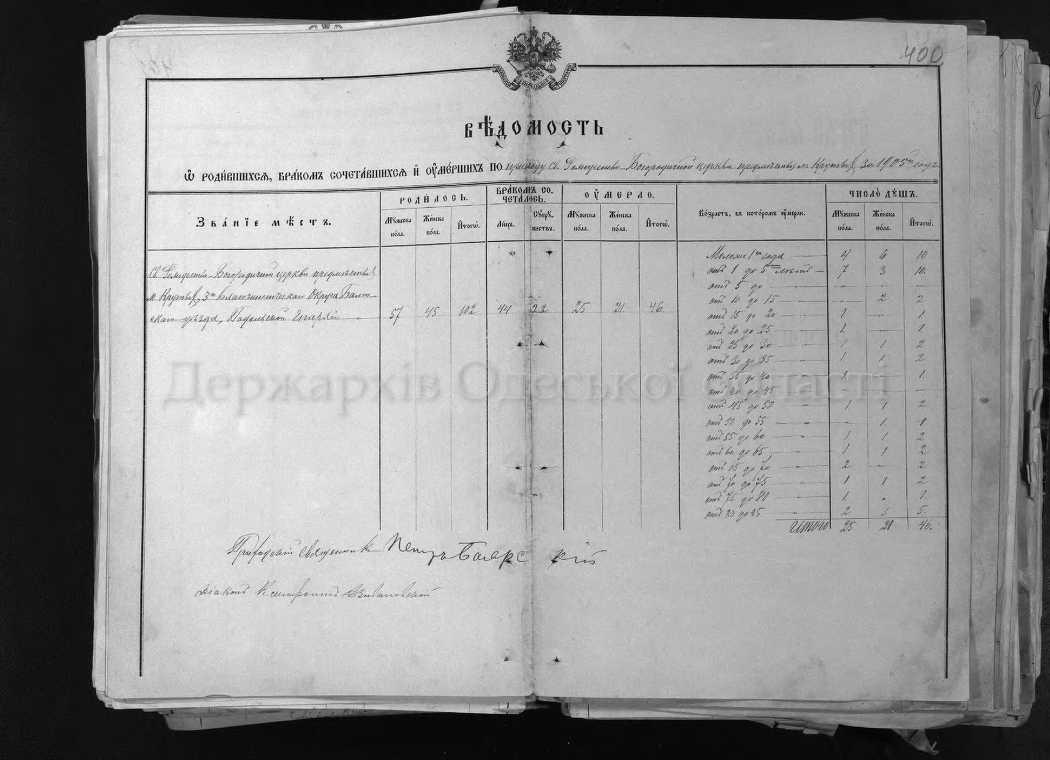 400
ВѢДОМОСТЬ
Ѡ РОДИВШИХСЯ, БРАКОМЪ СОЧЕТАВШИХСЯ И ОУМЕРШИХЪ ПО приходу Св. Рождество-Богородичной церкви предместья м. Крутыхъ, за 1905й годъ
ЗВАНІЕ МѢСТЪ.
РОДИЛОСЬ.
БРАКОМЪ СО-ЧЕТАЛОСЬ.
ОУМЕРЛО.
Возрастъ, въ которомъ умерли.
ЧИСЛО ДУШЪ.
Мужеска пола. Женска пола. Итого.
Лицъ. Супружествъ.
Мужеска пола. Женска пола. Итого.
Мужеска пола. Женска пола. Итого.
Св. Рождество-Богородичной церкви предместья
м. Крутыхъ, 3го благочинническаго Округа Балт-
скаго уѣзда, Подольской Губерніи 57 45 102 44 22 25 21 46
Менѣе 1го года 4 6 10
отъ 1 до 5 лѣтъ 7 3 10
отъ 5 до
отъ 10 до 15 - 2 2
отъ 15 до 20 1 - 1
отъ 20 до 25 1 - 1
отъ 25 до 30 1 1 2
отъ 30 до 35 1 1 2
отъ 35 до 40 1 - 1
отъ 40 до 45
отъ 45 до 50 1 1 2
отъ 50 до 55 - 1 1
отъ 55 до 60 1 1 2
отъ 60 до 65 1 1 2
отъ 65 до 70 2 - 2
отъ 70 до 75 1 1 2
отъ 75 до 80 1 - 1
до 85 2 3 5
Итого 25 21 46
Держархів Одеської області
Приходскій священникъ Петръ
Діаконъ